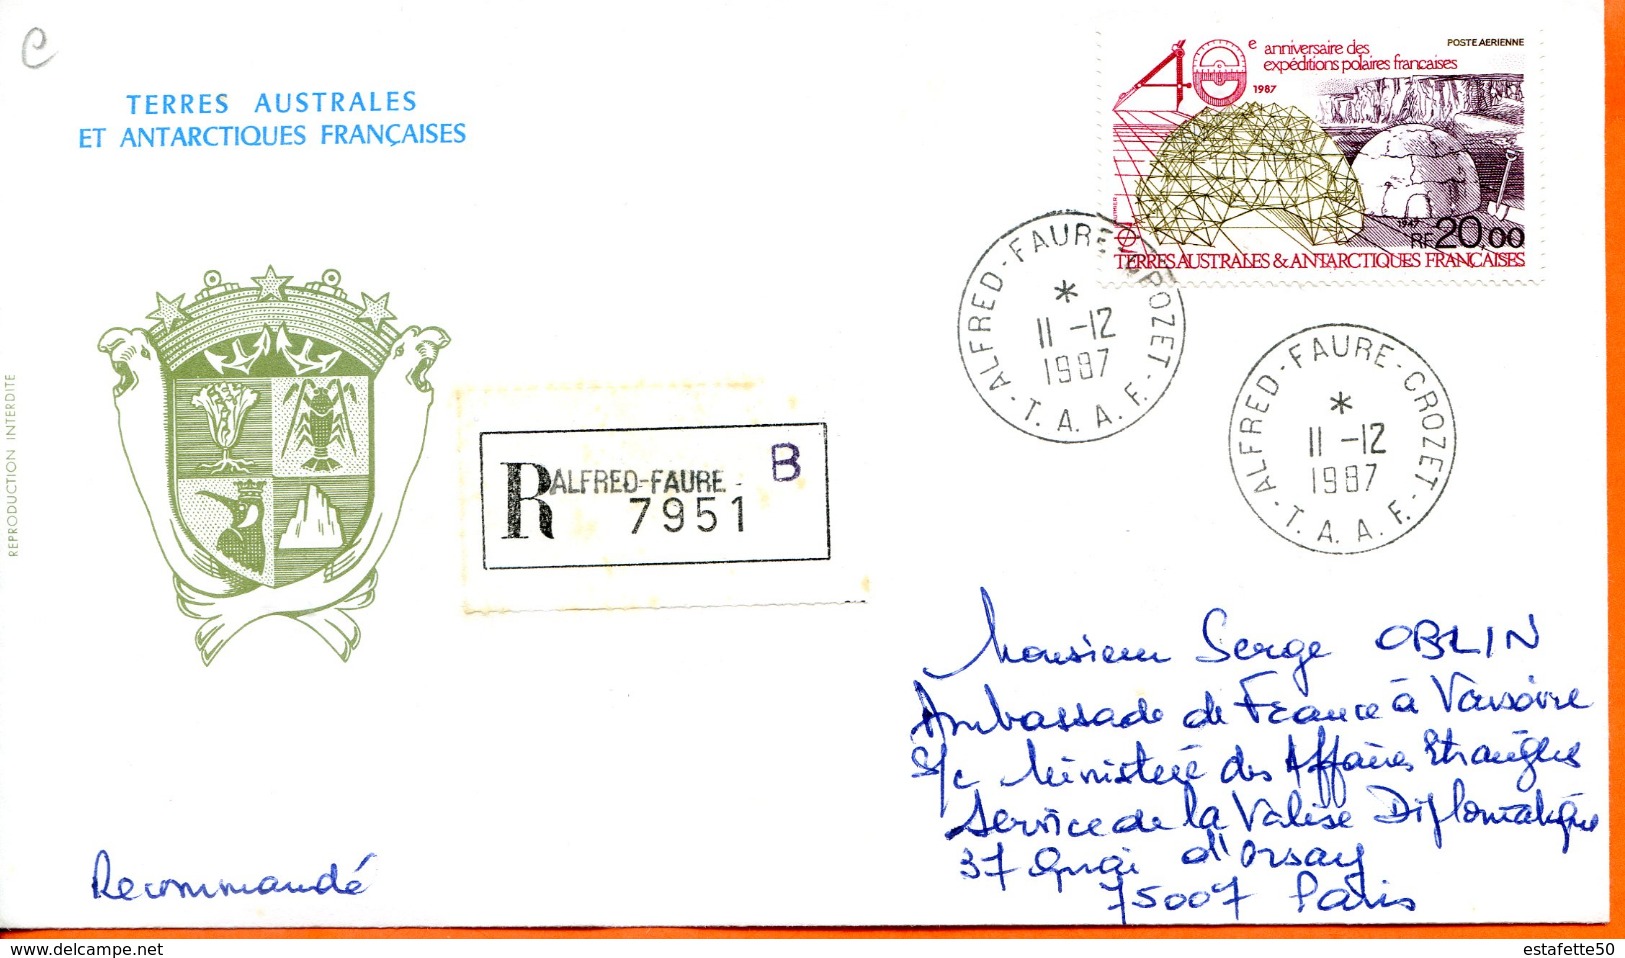 C
TERRES AUSTRALES
ET ANTARCTIQUES FRANÇAISES
REPRODUCTION INTERDITE
40e anniversaire des
expéditions polaires françaises
1987
POSTE AERIENNE
1947
RF 20,00
TERRES AUSTRALES & ANTARCTIQUES FRANÇAISES
ALFRED-FAURE-CROZET
*
11-12
1987
T.A.A.F.
ALFRED-FAURE-CROZET
*
11-12
1987
T.A.A.F.
R ALFRED-FAURE B
7951
Monsieur Serge OBLIN
Ambassade de France à Varsovie
S/c Ministère des Affaires Etrangères
Service de la Valise Diplomatique
37 Quai d'Orsay
75007 Paris
Recommandé
estafette50